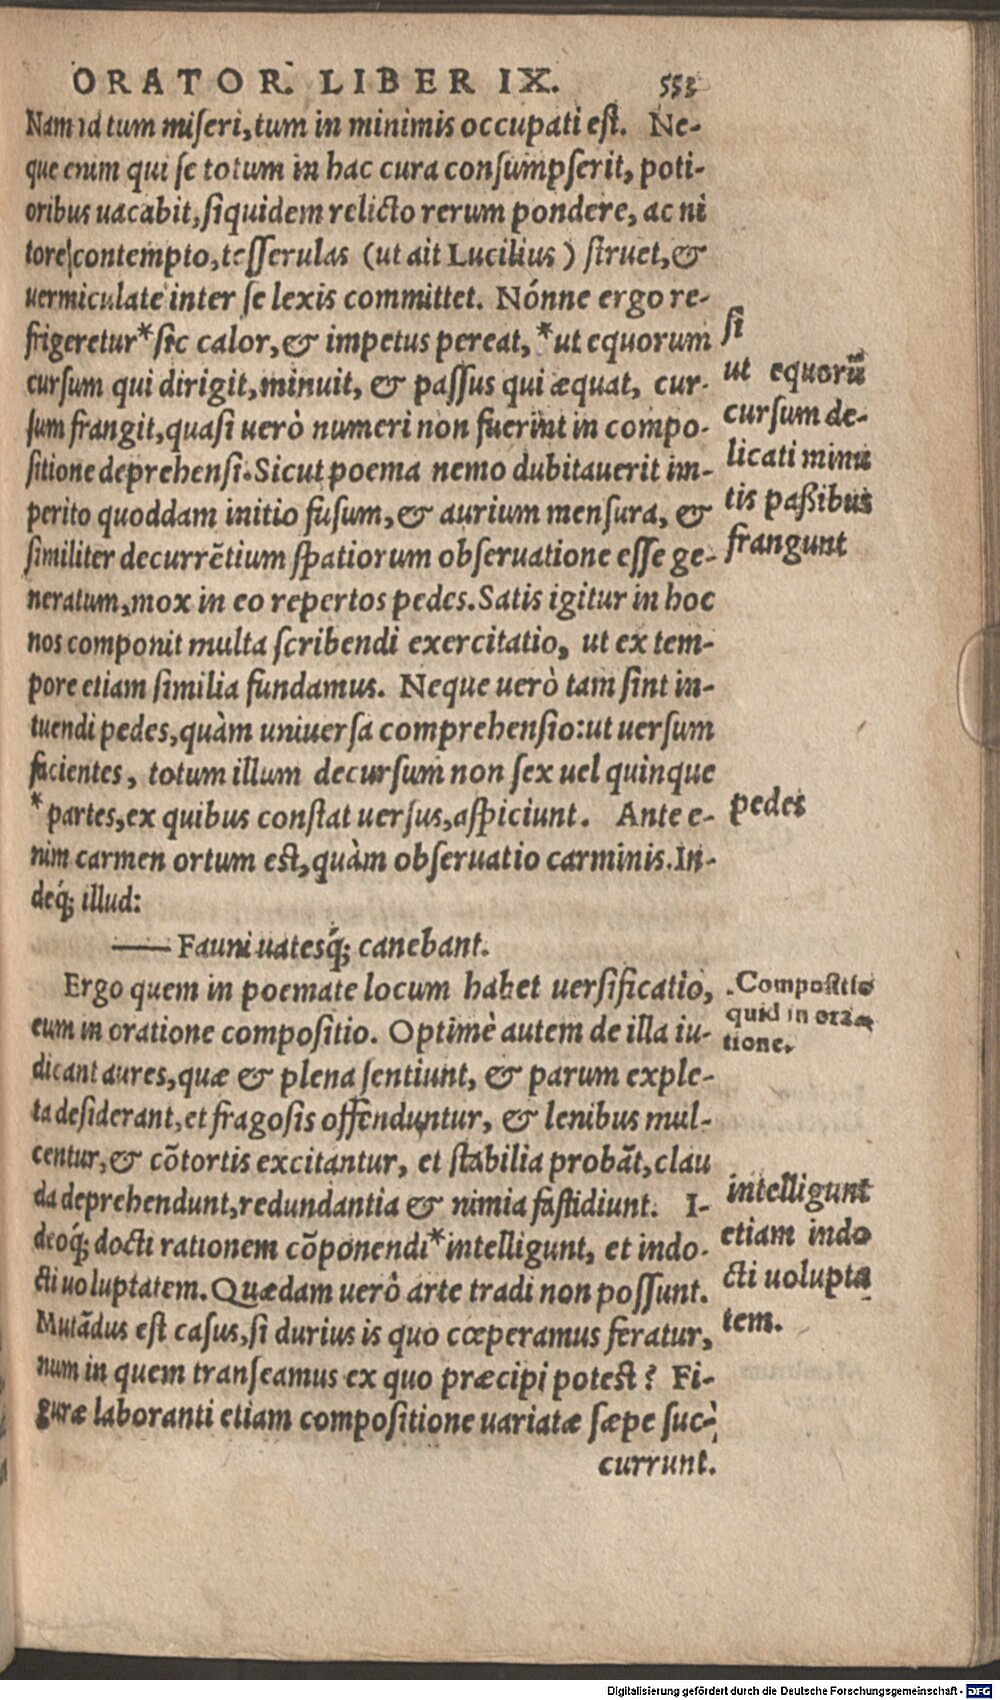 ORATOR. LIBER IX. 553
Nam id tum miseri, tum in minimis occupati est. Ne-
que enim qui se totum in hac cura consumpserit, poti-
oribus uacabit, siquidem relicto rerum pondere, ac ni
tore contempto, tesserulas (ut ait Lucilius) struet, &
uermiculate inter se lexis committet. Nónne ergo re-
frigeretur* sic calor, & impetus pereat, * ut equorum
cursum qui dirigit, minuit, & passus qui æquat, cur-
sum frangit, quasi uerò numeri non fuerint in compo-
sitione deprehensi. Sicut poema nemo dubitauerit im-
perito quoddam initio fusum, & aurium mensura, &
similiter decurrẽtium spatiorum obseruatione esse ge-
neratum, mox in eo repertos pedes. Satis igitur in hoc
nos componit multa scribendi exercitatio, ut ex tem-
pore etiam similia fundamus. Neque uerò tam sint in-
tuendi pedes, quàm uniuersa comprehensio: ut uersum
facientes, totum illum decursum non sex uel quinque
* partes, ex quibus constat uersus, aspiciunt. Ante e-
nim carmen ortum est, quàm obseruatio carminis. In-
deq́; illud:
—— Fauni uatesq́; canebant.
Ergo quem in poemate locum habet uersificatio,
eum in oratione compositio. Optimè autem de illa iu-
dicant aures, quæ & plena sentiunt, & parum exple-
ta desiderant, et fragosis offenduntur, & lenibus mul-
centur, & cõtortis excitantur, et stabilia probãt, clau
da deprehendunt, redundantia & nimia fastidiunt. I-
deoq́; docti rationem cõponendi* intelligunt, et indo-
cti uoluptatem. Quædam uerò arte tradi non possunt.
Mutãdus est casus, si durius is quo cœperamus feratur,
num in quem transeamus ex quo præcipi potest? Fi-
guræ laboranti etiam compositione uariatæ sæpe suc-
currunt.
si
ut equorũ
cursum de-
licati minu
tis paßibus
frangunt
pedes
Compositio
quid in ora
tione.
intelligunt
etiam indo
cti uolupta
tem.
Digitalisierung gefördert durch die Deutsche Forschungsgemeinschaft - DFG